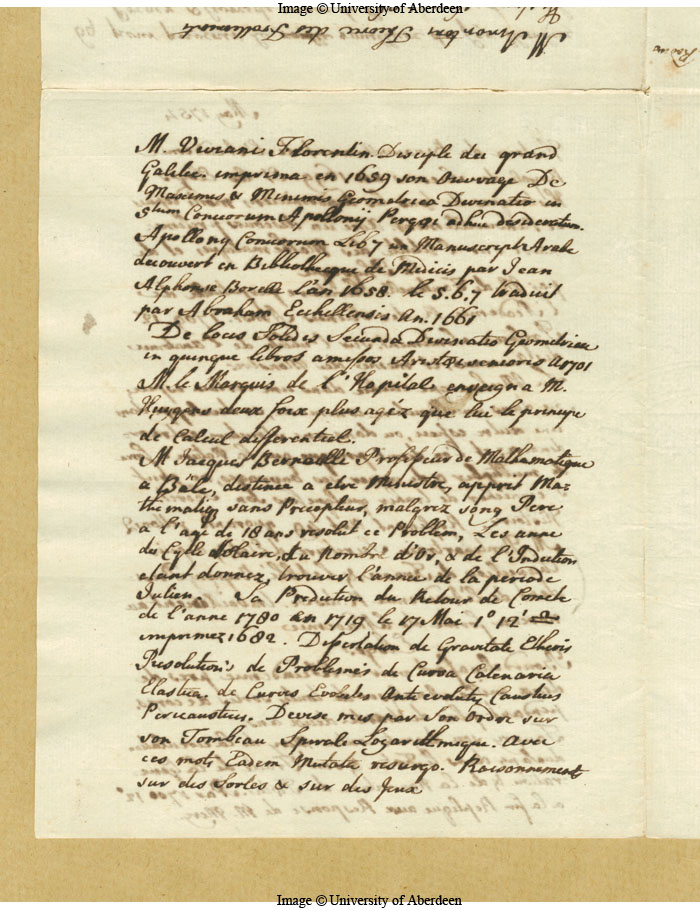 Image © University of Aberdeen
M. Viviani Florentin. Disciple du grand
Galilee. imprima en 1659 son Ouvrage De
Maximis & Minimis Geometrica Divinatio in
5tum Conicorum Apollonij Pergæi adhuc desideratum.
Apollonij Conicorum Lib 7 un Manuscript Arabe
decouvert en Bibliotheque de Medicis par Jean
Alphonse Borelli l'an 1658. le 5.6.7 traduit
par Abraham Ecchellensis An. 1661
De locis Solides Secunda Divinatio Geometrica
in quinque libros amissos Aristæi senioris A 1701
M. le Marquis de l'Hopitale enseigna M.
Huygens deux foix plus agéz que lui le principe
de Calcul differentiel.
M Jacques Bernoulle Professeur de Mathematique
a Bâle, destinée a etre Ministre, apprit Ma-
thematiq sans Precepteur, malgrez song Pere
a l'age de 18 ans resolut ce Problem, Les anne
du Cycle solaire, du Nombre d'Or, & de l'Indiction
etant donnez, trouver l'année de la periode
Julien. Sa Prediction du Retour de Comete
de l'anne 1780 en 1719 le 17 Mai 1° 12'
imprimez 1682. Dissertation de Gravitate Etheris
Resolution's de Problemes de Curva Catenaria
Elastica. de Curvis Evolutes Antievolutes Causticis
Pericausticis. Devise mis par Son Ordre sur
son Tombeau Spirale Logarithmique. avec
ces mots Eadem Mutata resurgo. Raisonnements
sur des Sortes & sur des Jeux
Image © University of Aberdeen